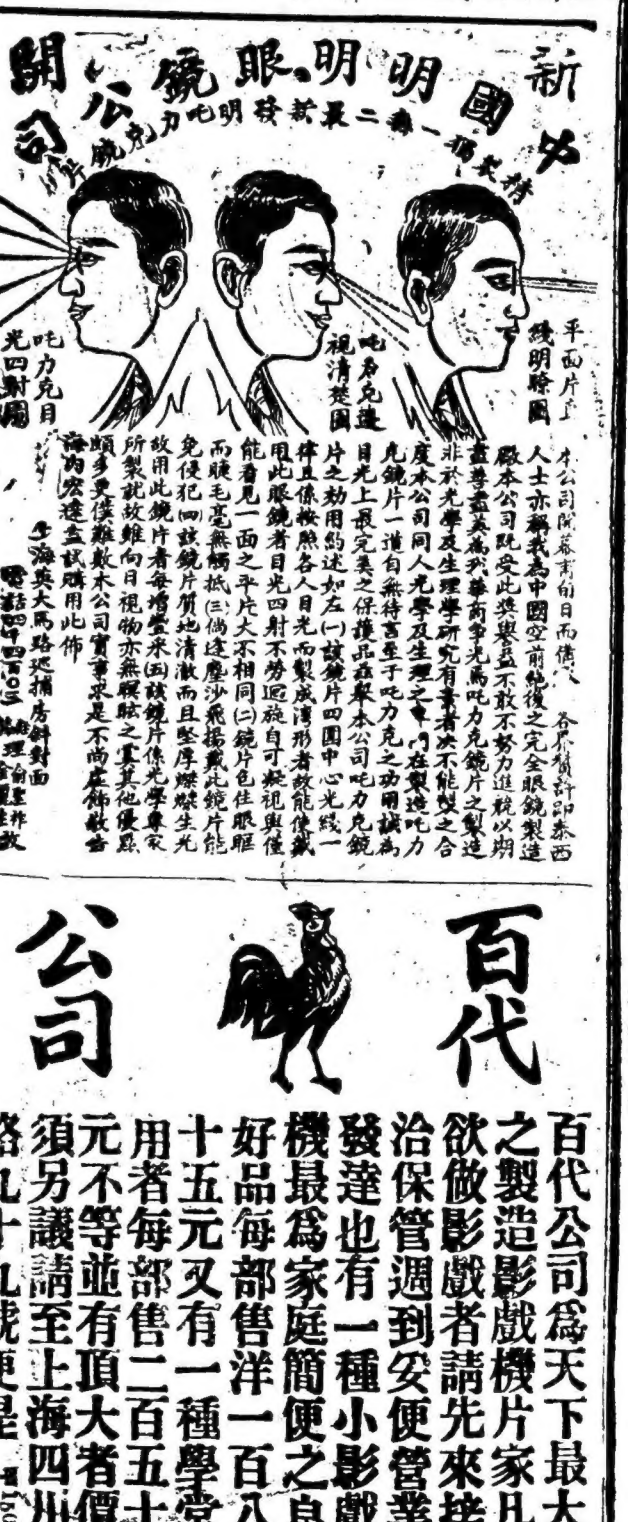 新開
中國明明眼鏡公司
精製獨一無二最新發明吒力克鏡
平面片上
綫明睁圖
吒力克遠
視清楚圖
吒力克目
光四射圖
人士亦稱我爲中國空前絕後之完全眼鏡製造
本公司既受此獎譽益不敢不努力進競以期
盡善盡美爲我華商爭光焉吒力克鏡片之製造
非於光學及生理學研究有素者决不能製之合
度本公司同人光學及生理之專門在製造吒力
克鏡片一道自無待言至于吒力克之功用誠爲
目光上最完美之保護品茲擧本公司吒力克鏡
片之効用約述如左(一)該鏡片四圍中心光綫一
律且係按照各人目光而製成灣形者故能使戴
用此眼鏡者目光四射不勞迴旋自可凝視與僅
能看見一面之平片大不相同(二)鏡片包住眼眶
而睫毛毫無觸抵(三)倘逢塵沙飛揚戴此鏡片能
免侵犯(四)該鏡片質地清澈而且堅厚燦燦生光
故用此鏡片者每增豐采(五)該鏡片係光學專家
所製就故雖向日視物亦無瞑眩之害其他優點
頗多更僕難數本公司實事求是不尚虛飾敬告
海內宏達盍試購用此佈
上海英大馬路巡捕房斜對面
百代
公司
百代公司爲天下最大
之製造影戲機片家凡
欲做影戲者請先來接
洽保管週到安便營業
發達也有一種小影戲
機最爲家庭簡便之良
好品每部售洋一百八
十五元又有一種學堂
用者每部售二百五十
元不等並有頂大者價
須另議請至上海四川
路九十九號便是